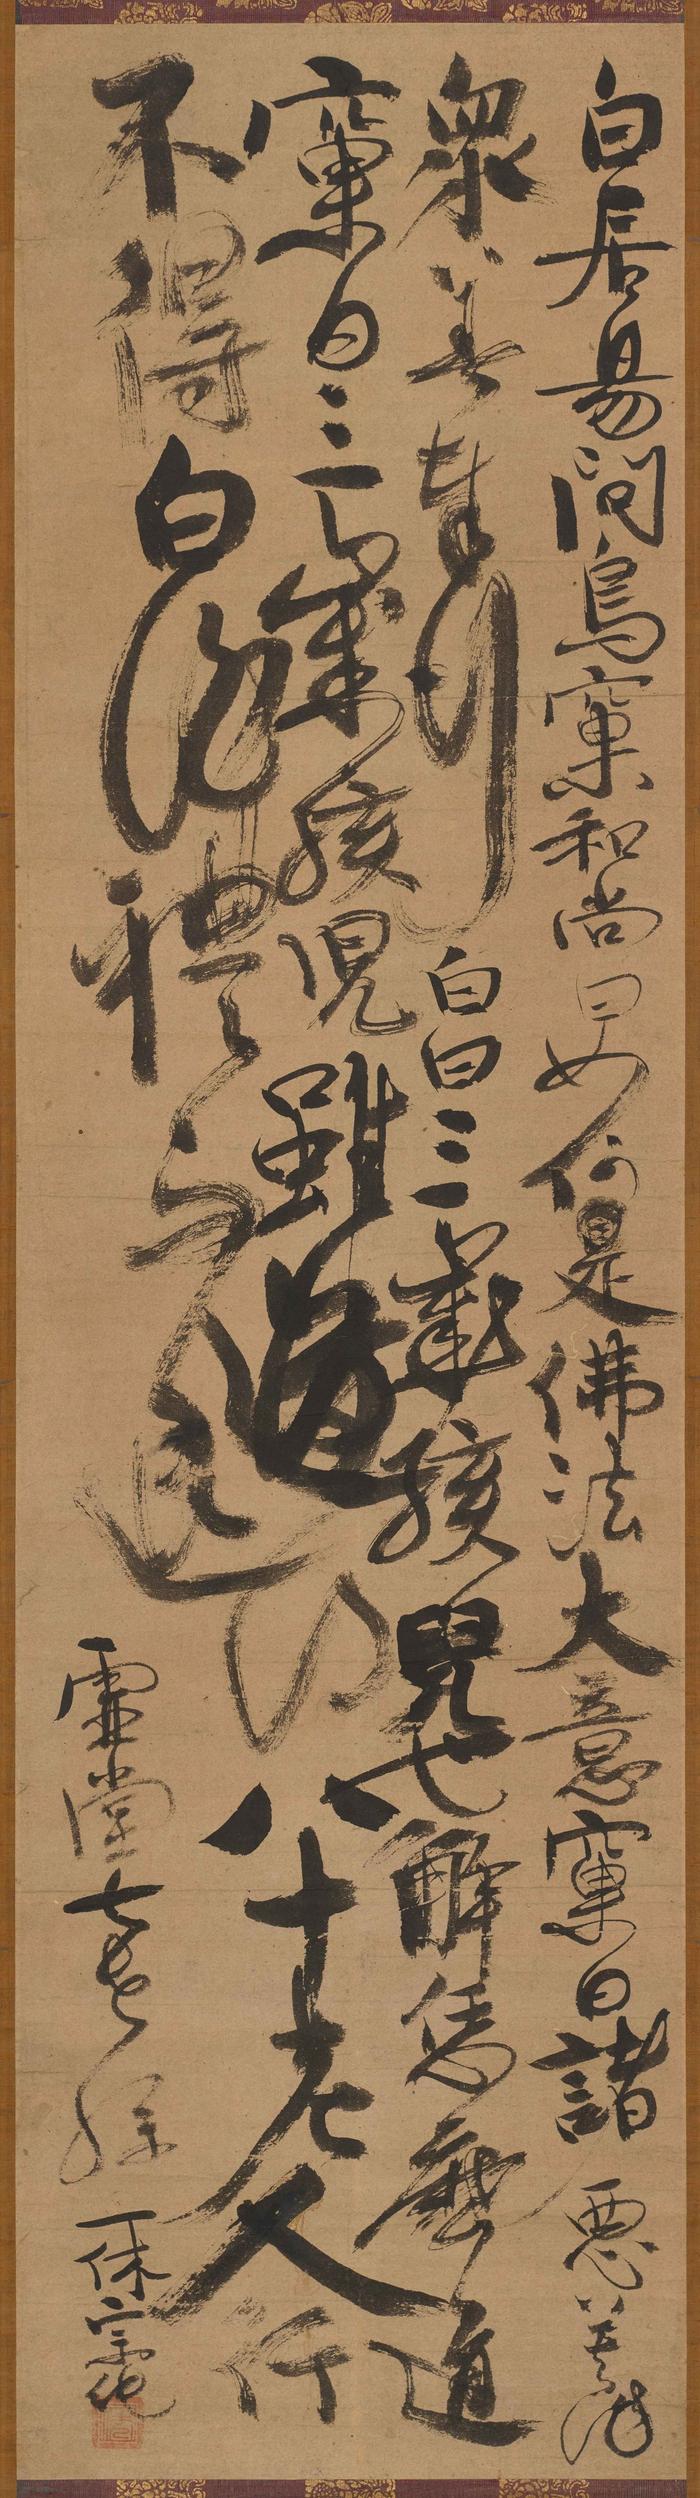 白居易問鳥窠和尚曰如何是佛法大意窠曰諸悪莫作
衆善奉行白曰三歳孩兒也解恁麼道
窠曰三歳孩児雖道得八十老人行
不得白作禮而退
虚堂七世孫一休宗純